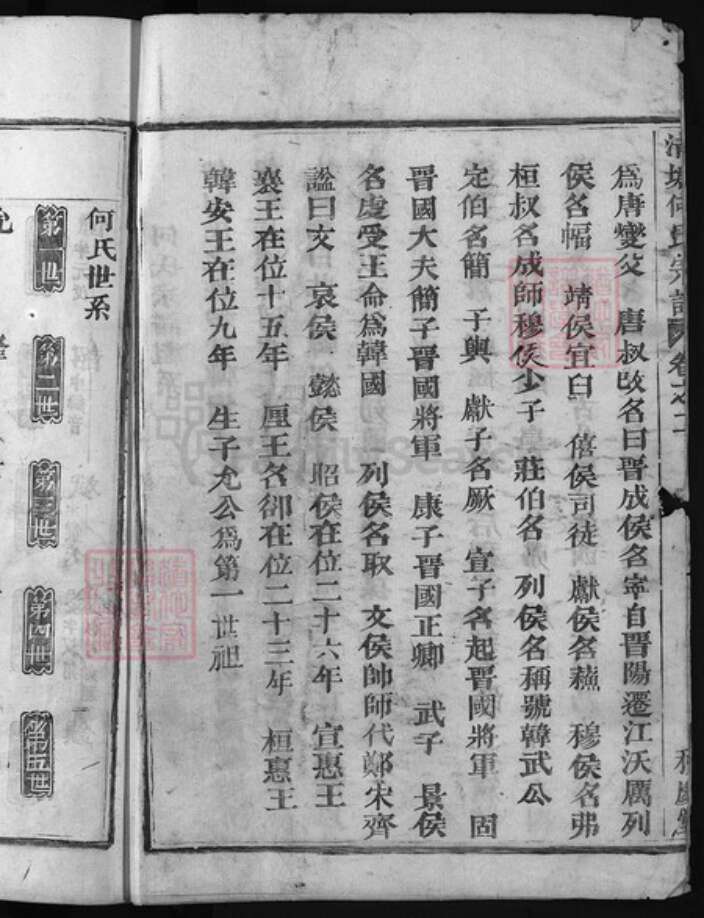 何氏宗譜 卷之二
為唐燮父 唐叔改名曰晋成侯名寧自晋陽遷江沃厲列
侯名幅 靖侯宜臼 僖侯司徒 獻侯名蘓 穆侯名弗
桓叔名成師穆侯少子 莊伯名 列侯名稱號韓武公
定伯名簡 子輿 獻子名厥 宣子名起晋國將軍 固
晋國大夫簡子晋國將軍 康子晋國正卿 武子 景侯
名虔受王命為韓國 列侯名取 文侯帥師代鄭宋齊
謚曰文 哀侯 懿侯 昭侯在位二十六年 宣惠王
襄王在位十五年 厘王名卻在位二十三年 桓惠王
韓安王在位九年 生子允公為第一世祖
何氏世系
第一世
第二世
第三世
第四世
第五世